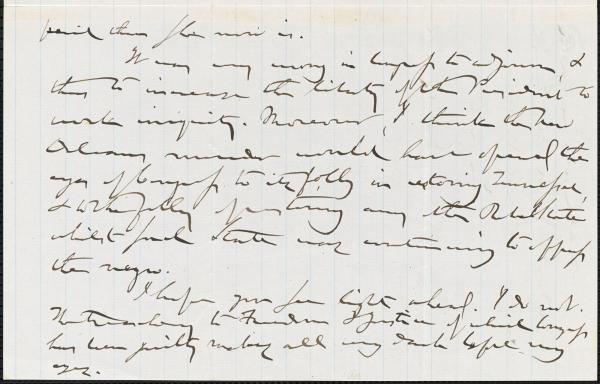 peril than she now is.
It was very wrong in Congress to adjourn, &
thus to increase the liberty of the President to
work iniquity. Moreover, I think the New
Orleans murder would have opened the
eyes of Congress to its folly in restoring Tennessee,
& to the folly of restoring any other Rebel State
whilst such State was continuing to oppress
the negro.
I hope you see light ahead. I do not.
The treachery to Freedom & Justice of which Congress
has been guilty makes all very dark before my
eyes.